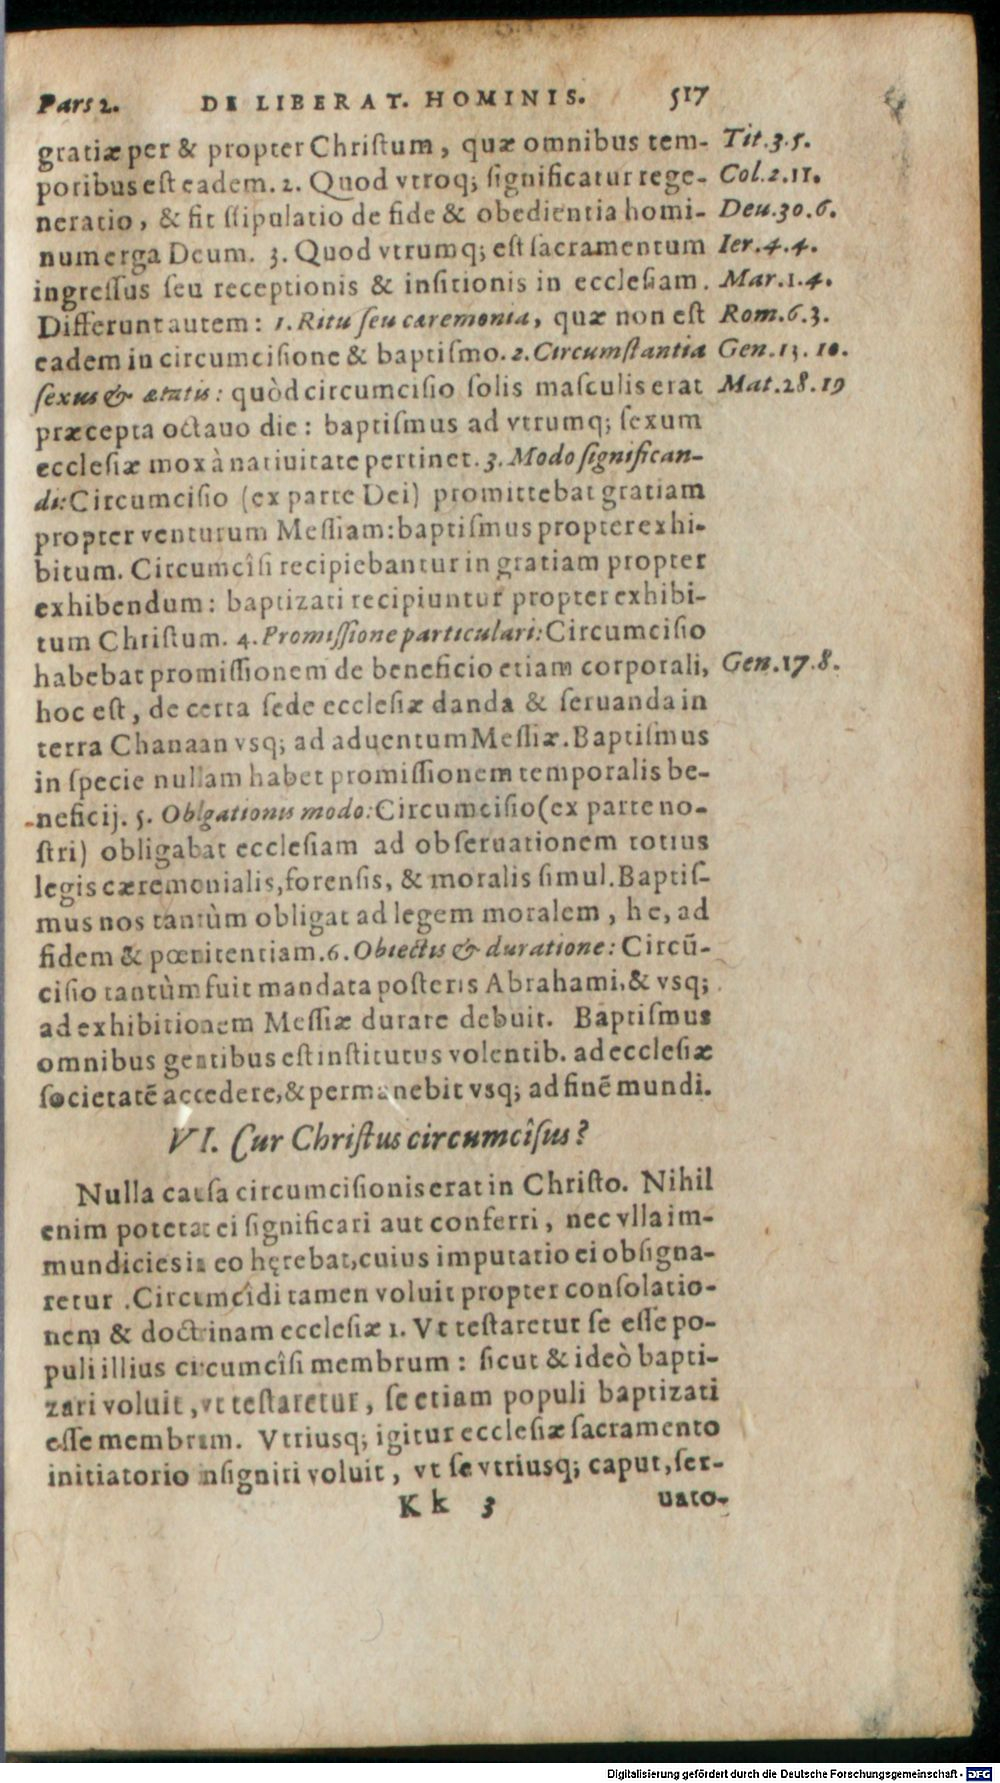 Pars 2. DE LIBERAT. HOMINIS. 517
gratiæ per & propter Christum, quæ omnibus tem- Tit.3.5.
poribus est eadem. 2. Quod vtroq; significatur rege- Col.2.11.
neratio, & fit stipulatio de fide & obedientia homi- Deu.30.6.
num erga Deum. 3. Quod vtrumq; est sacramentum Ier.4.4.
ingressus seu receptionis & insitionis in ecclesiam. Mar.1.4.
Differunt autem: 1. Ritu seu cæremonia, quæ non est Rom.6.3.
eadem in circumcisione & baptismo. 2. Circumstantia Gen.13.10.
sexus & ætatis: quòd circumcisio solis masculis erat Mat.28.19
præcepta octauo die: baptismus ad vtrumq; sexum
ecclesiæ mox à natiuitate pertinet. 3. Modo significan-
di: Circumcisio (ex parte Dei) promittebat gratiam
propter venturum Messiam: baptismus propter exhi-
bitum. Circumcîsi recipiebantur in gratiam propter
exhibendum: baptizati recipiuntur propter exhibi-
tum Christum. 4. Promissione particulari: Circumcisio
habebat promissionem de beneficio etiam corporali, Gen.17.8.
hoc est, de certa sede ecclesiæ danda & seruanda in
terra Chanaan vsq; ad aduentum Messiæ. Baptismus
in specie nullam habet promissionem temporalis be-
neficij. 5. Oblgationis modo: Circumcisio (ex parte no-
stri) obligabat ecclesiam ad obseruationem totius
legis cæremonialis, forensis, & moralis simul. Baptis-
mus nos tantùm obligat ad legem moralem, h e, ad
fidem & pœnitentiam. 6. Obiectis & duratione: Circũ-
cisio tantùm fuit mandata posteris Abrahami, & vsq;
ad exhibitionem Messiæ durare debuit. Baptismus
omnibus gentibus est institutus volentib. ad ecclesiæ
societatẽ accedere, & permanebit vsq; ad finẽ mundi.
VI. Cur Christus circumcîsus?
Nulla causa circumcisionis erat in Christo. Nihil
enim poterat ei significari aut conferri, nec vlla im-
mundicies in eo hęrebat, cuius imputatio ei obsigna-
retur. Circumcîdi tamen voluit propter consolatio-
nem & doctrinam ecclesiæ 1. Vt testaretur se esse po-
puli illius circumcîsi membrum: sicut & ideò bapti-
zari voluit, vt testaretur, se etiam populi baptizati
esse membrum. Vtriusq; igitur ecclesiæ sacramento
initiatorio insigniri voluit, vt se vtriusq; caput, ser-
Kk 3 uato-
Digitalisierung gefördert durch die Deutsche Forschungsgemeinschaft - DFG